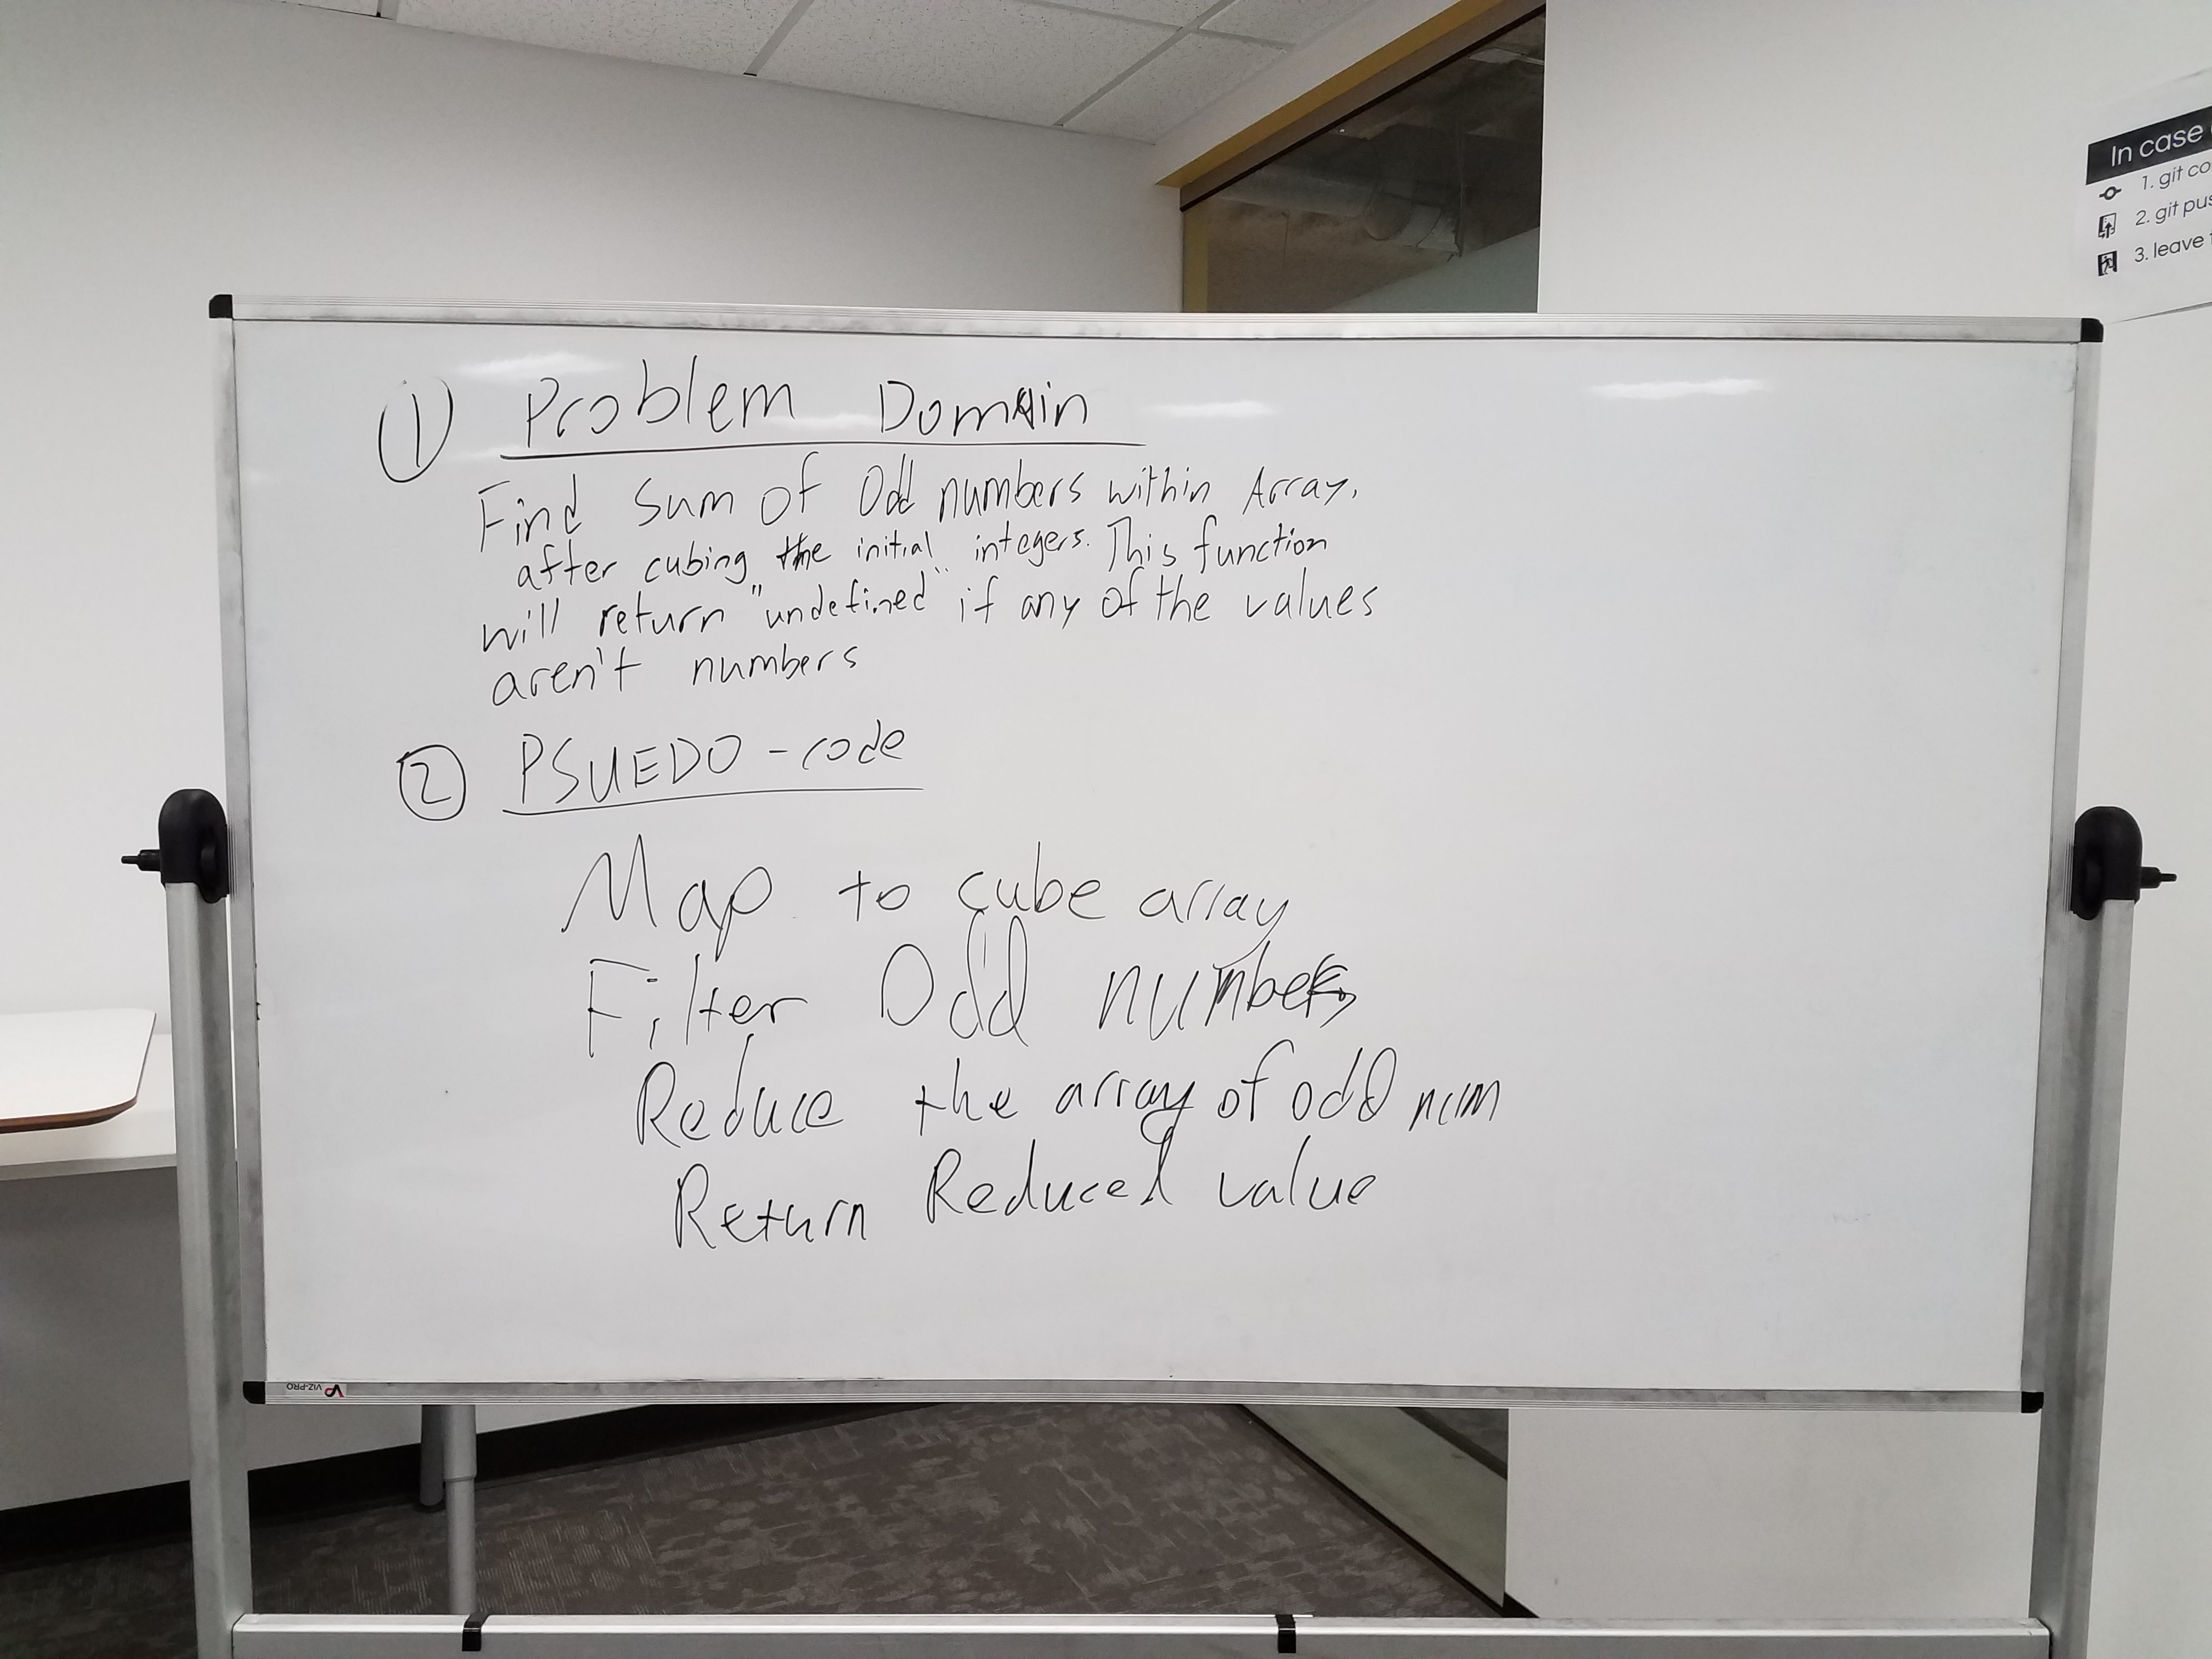 In case
1. git co
2. git pus
3. leave t
① Problem Domain
Find Sum of Odd numbers within Array,
after cubing the initial integers. This function
will return "undefined" if any of the values
aren't numbers
② PSUEDO-code
Map to cube array
Filter Odd numbers
Reduce the array of odd num
Return Reduced value
VIZ-PRO